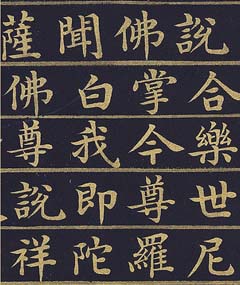 薩聞佛說
合掌白佛
尊我今樂
世尊即說
祥陀羅尼